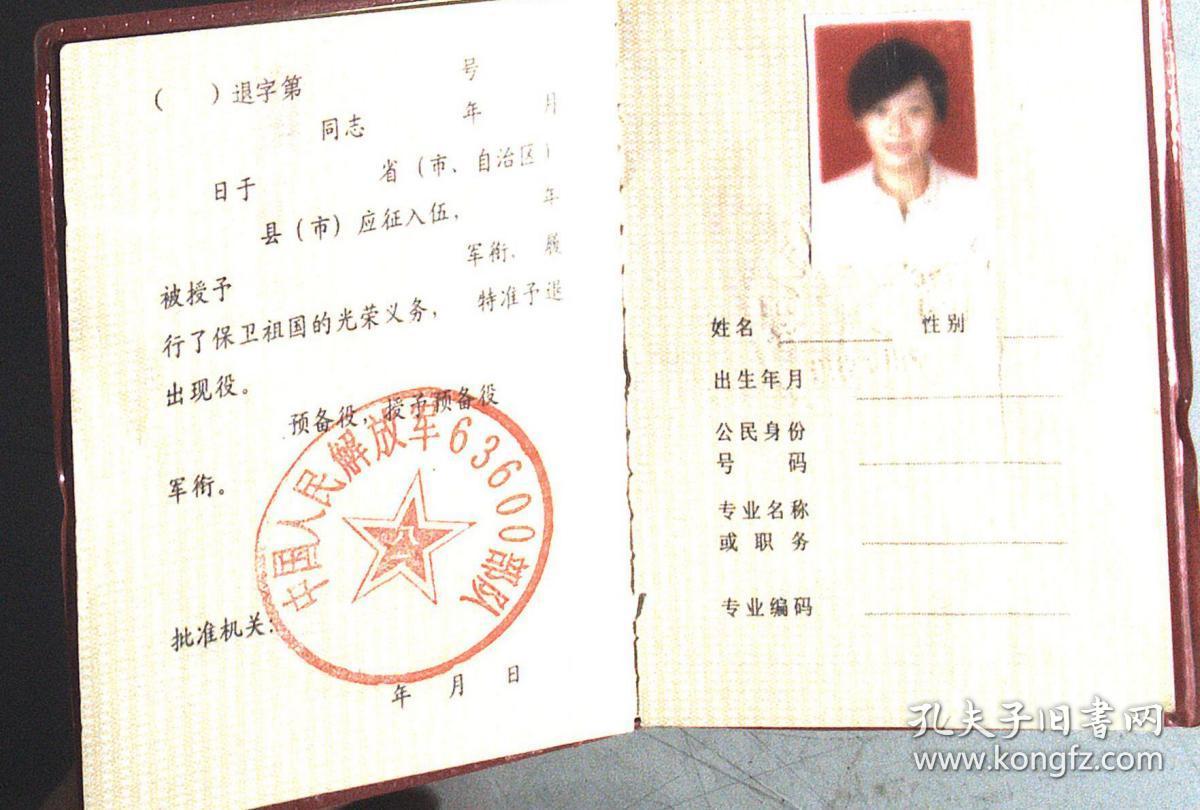 （ ）退字第 号
同志 年 月
日于 省（市、自治区）
县（市）应征入伍， 年
被授予 军衔，履
行了保卫祖国的光荣义务，特准予退
出现役。
预备役，授予预备役
军衔。
中国人民解放军63600部队
八一
批准机关：
年 月 日
姓名 性别
出生年月
公民身份
号 码
专业名称
或职务
专业编码
孔夫子旧书网
www.kongfz.com